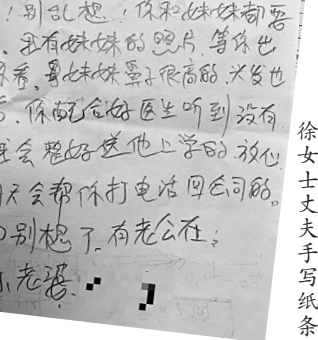 ！别乱想！你和妹妹都要
，我有妹妹的照片，等你出
你看，哥妹妹鼻子很高的，头发也
，你配合好医生听到没有
我会整好送他上学的，放心
天会帮你打电话回公司的。
别想了，有老公在；
老婆
徐女士丈夫手写纸条